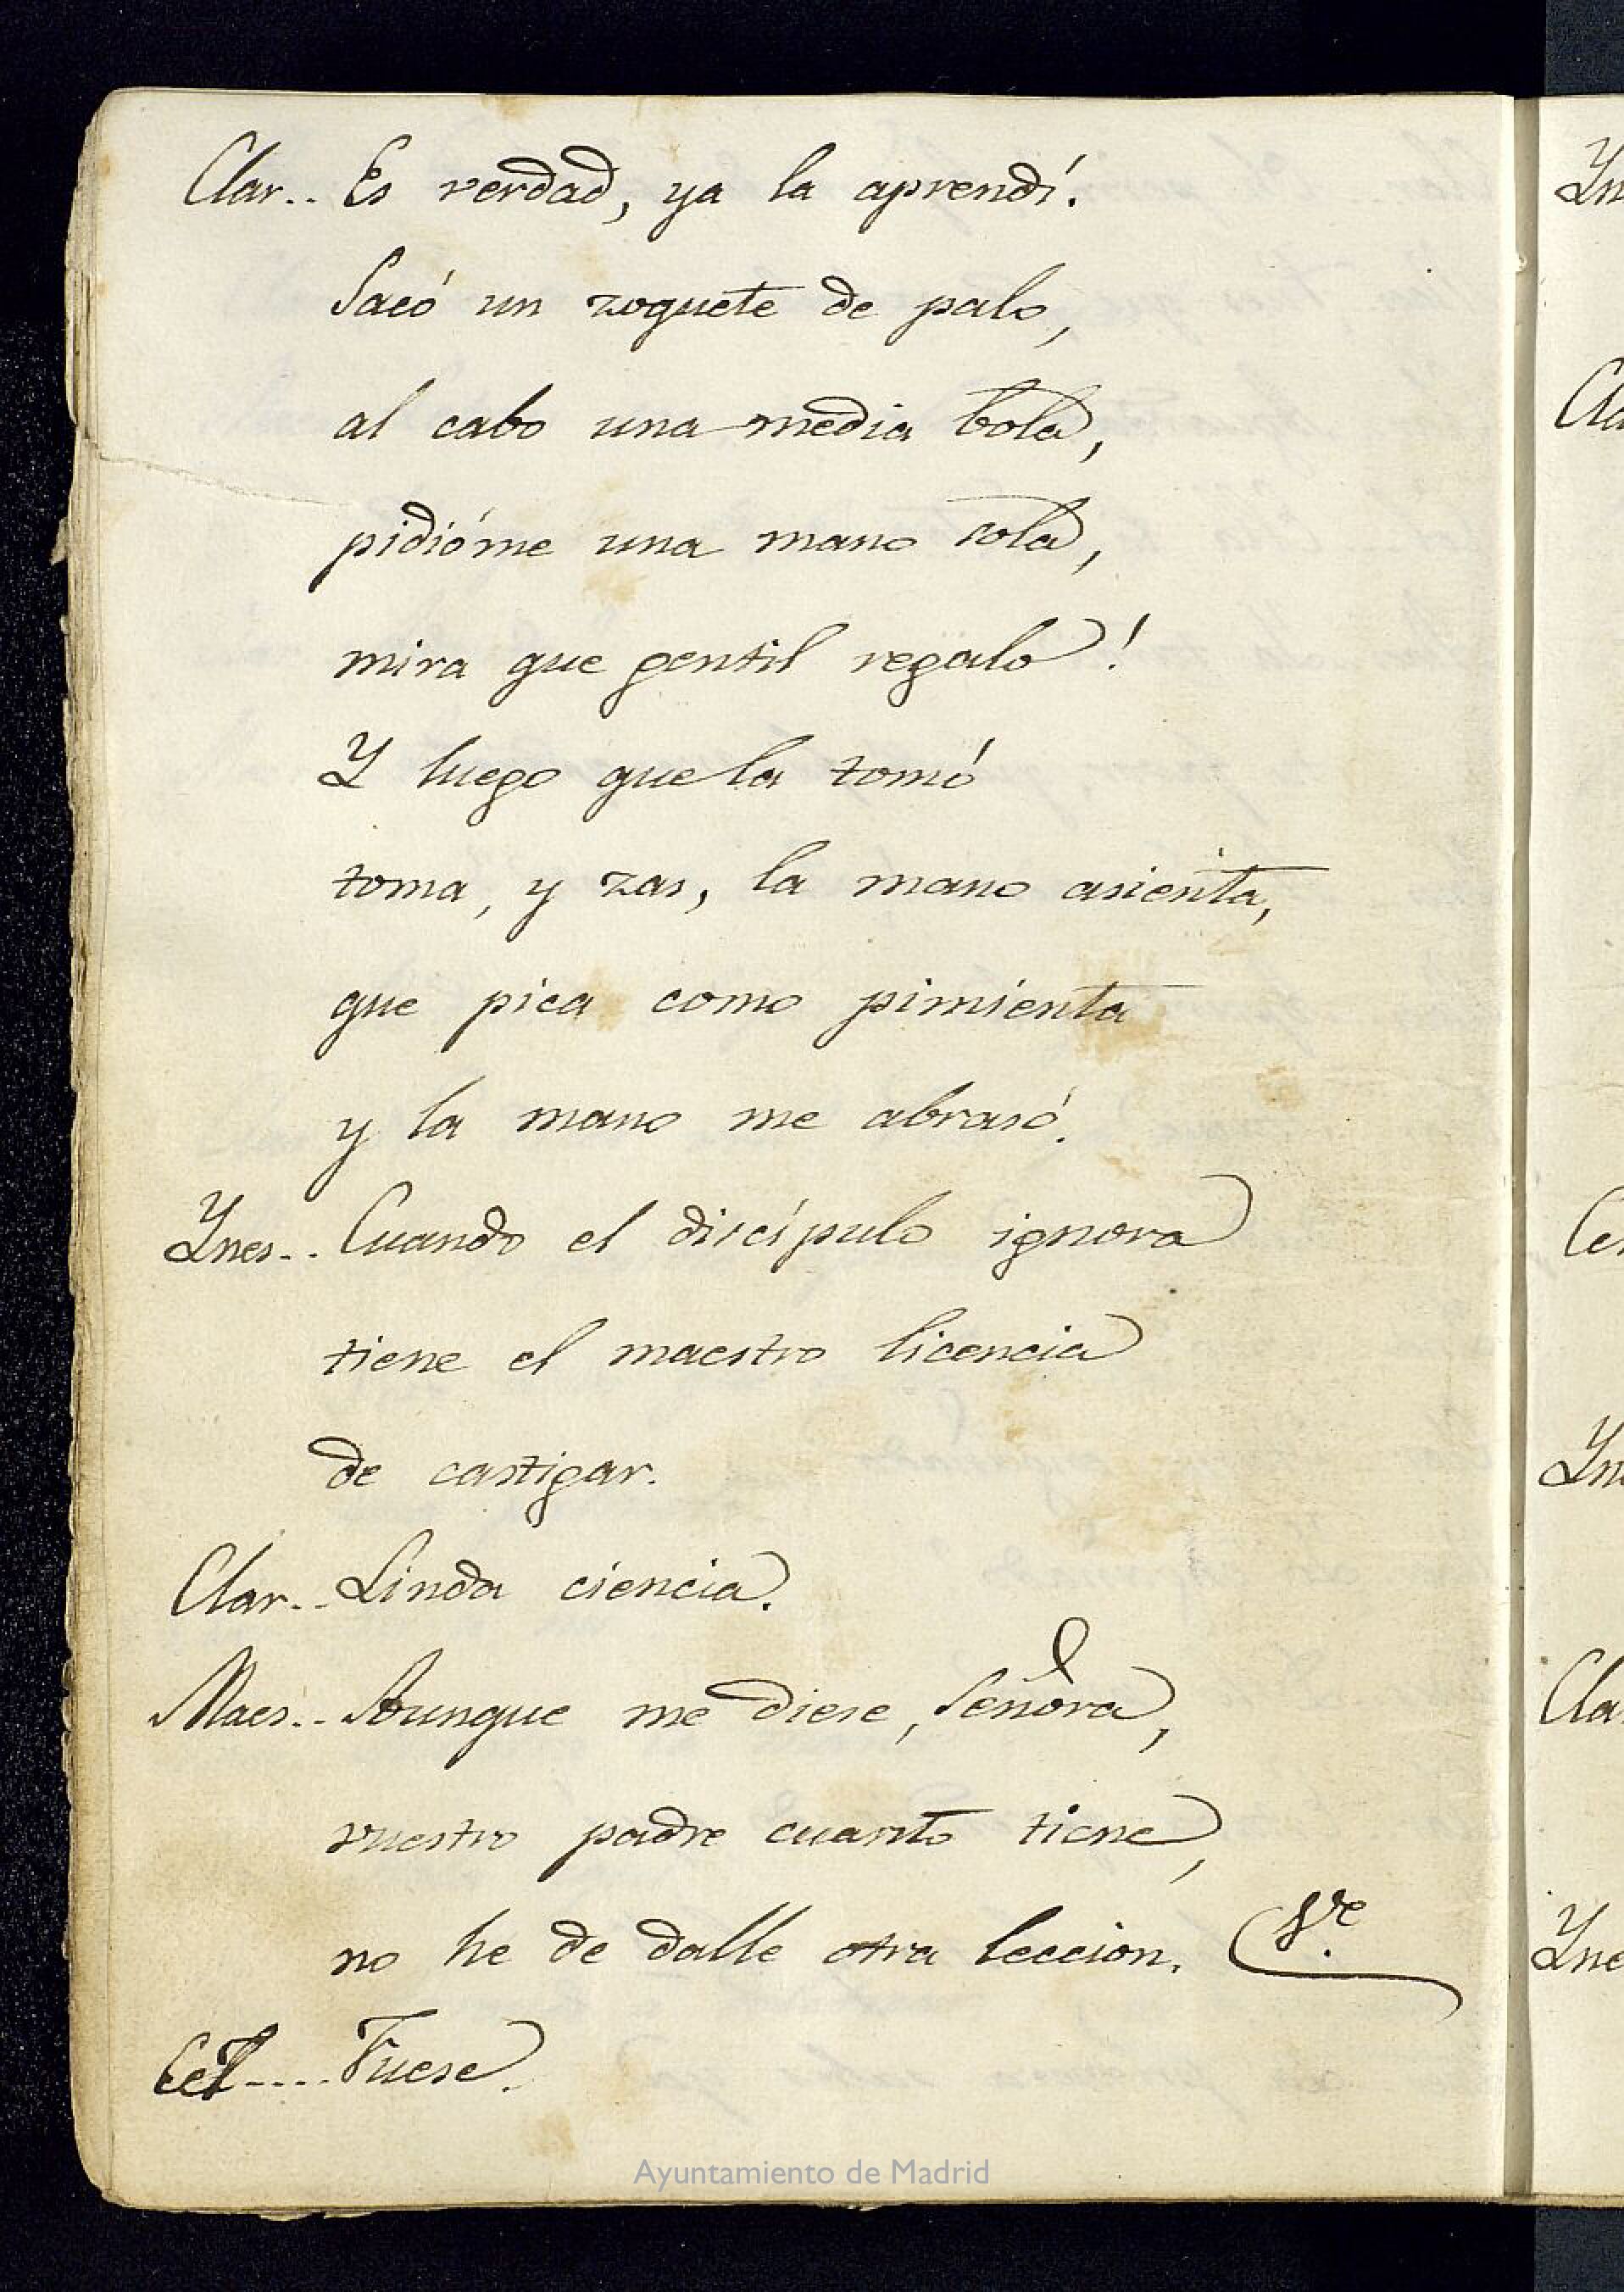 Clar.. Es verdad, ya la aprendí.
Sacó un zoquete de palo,
al cabo una media bola,
pidióme una mano sola,
mira que gentil regalo!
Y luego que la tomó
toma, y zas, la mano asienta,
que pica como pimienta
y la mano me abrasó.
Ynes.. Cuando el discípulo ignora
tiene el maestro licencia
de castigar.
Clar.. Linda ciencia.
Maes.. Aunque me diese, Señora,
vuestro padre cuanto tiene,
no he de dalle otra leccion. (Ve.
Cel.... Fuese.
Ayuntamiento de Madrid
Yn
Cla
Ce
Yn
Cla
Yne